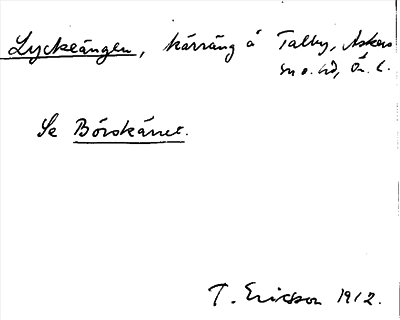 Lyckeängen, kärräng å Talby, Askers
sn o. hd, Ör. l.
Se Börskärret.
T. Ericsson 1912.